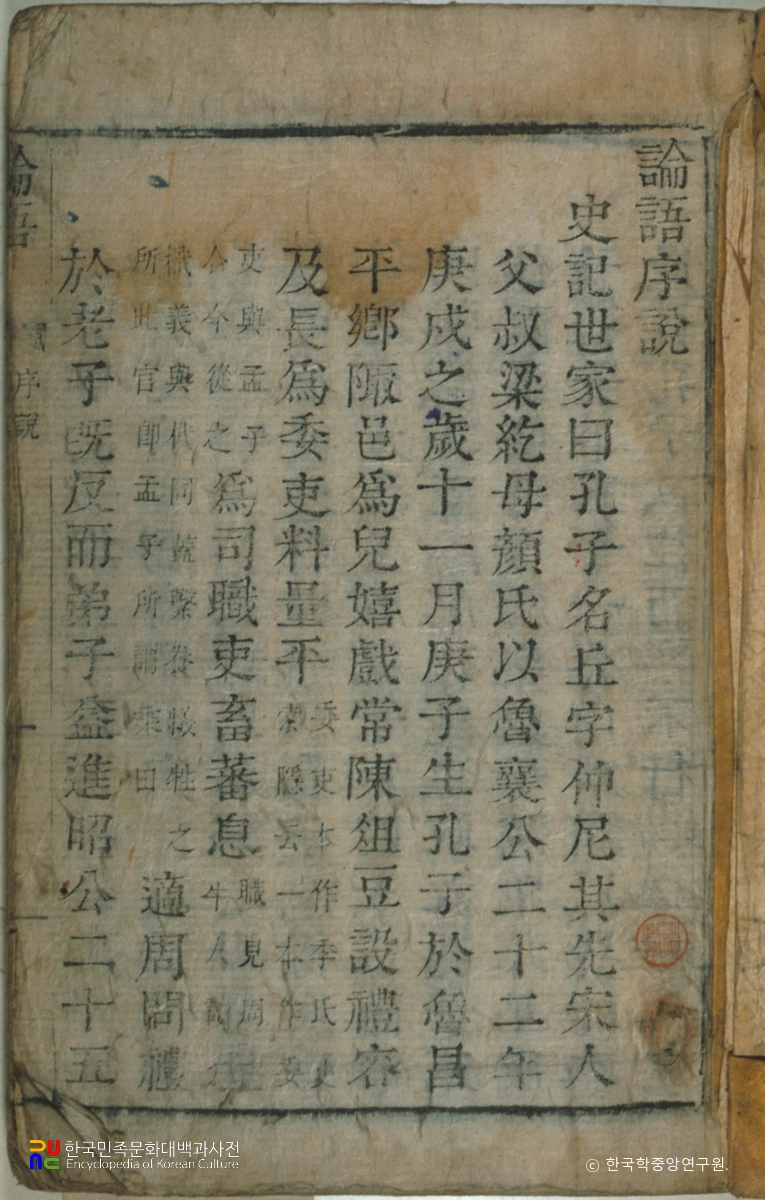 論語序說
史記世家曰孔子名丘字仲尼其先宋人
父叔梁紇母顏氏以魯襄公二十二年
庚戍之歲十一月庚子生孔子於魯昌
平鄉陬邑爲兒嬉戲常陳俎豆設禮容
及長爲委吏料量平
委吏本作季氏史
索隱云一本作委
吏與孟子
合今從之
爲司職吏畜蕃息
職見周
牛人讀爲
樴義與杙同蓋繫養犧牲之
所此官卽孟子所謂乘田
適周問禮
於老子旣反而弟子益進昭公二十五
論語 序說
한국민족문화대백과사전
Encyclopedia of Korean Culture
ⓒ 한국학중앙연구원.